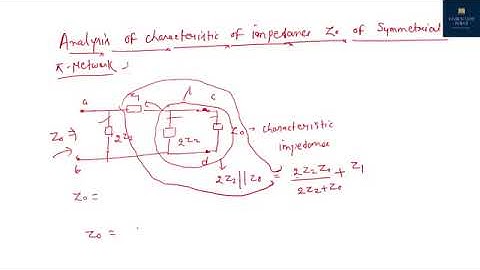 Analysis of characteristic of impedance Z0 of Symmetrical
π-Network
a
Z1
c
Z0 →
2Z2
2Z2
Z0 - characteristic
impedance
b
d
2Z2 || Z0 = 2Z2Z0 / 2Z2+Z0 + Z1
Z0 =
Z0 =